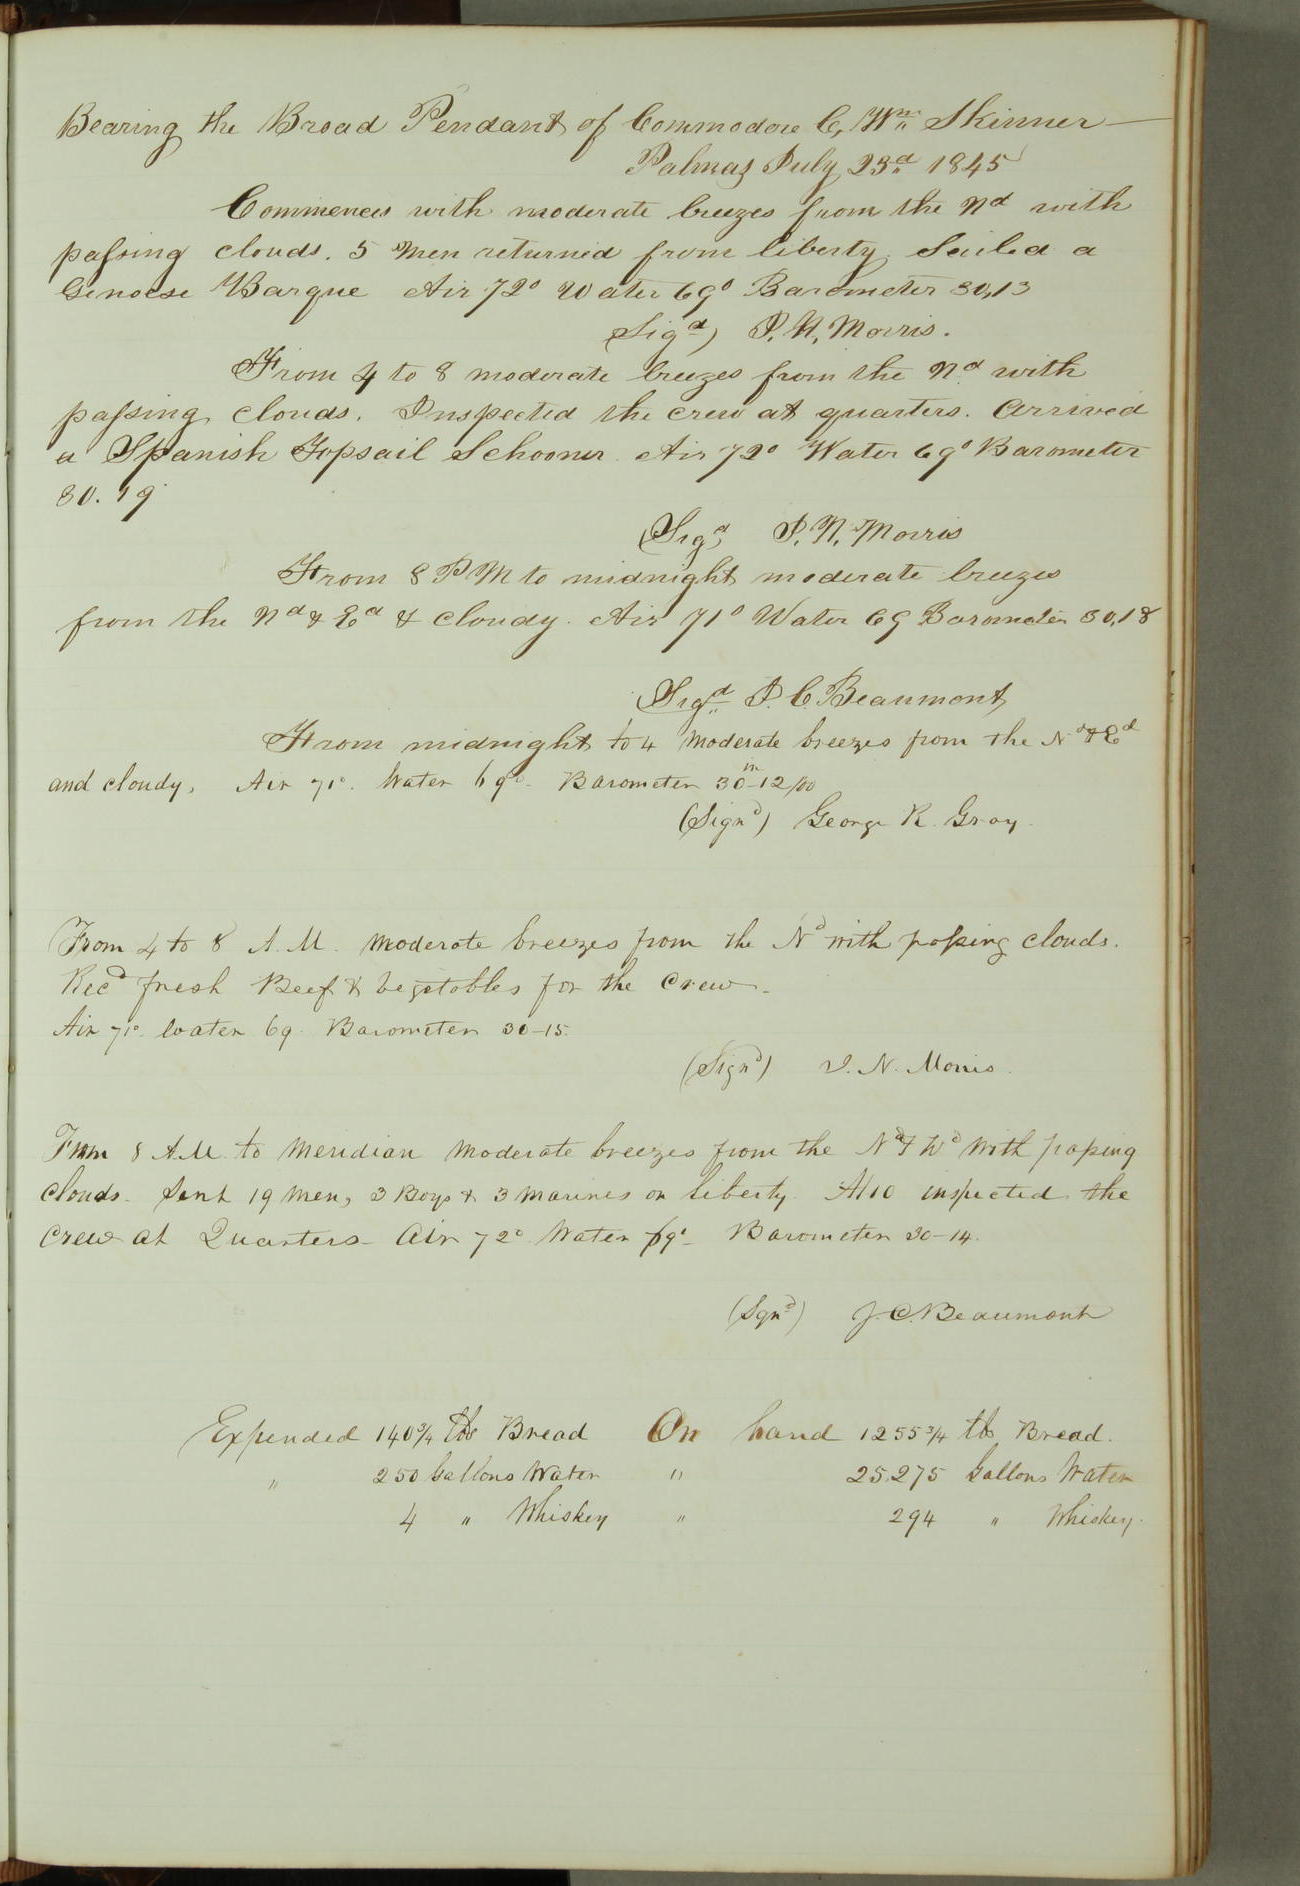 Bearing the Broad Pendant of Commodore C, Wm Skinner
Palmas July 23d 1845
Commences with moderate breezes from the Nd with
passing clouds. 5 Men returned from liberty. Sailed a
Genoese Barque Air 72° Water 69° Barometer 30,13
(Sigd) I. N. Morris.
From 4 to 8 moderate breezes from the Nd with
passing clouds. Inspected the crew at quarters. Arrived
a Spanish Topsail Schooner. Air 72° Water 69° Barometer
30.19
(Sigd) I. N. Morris
From 8 PM to midnight moderate breezes
from the Nd & Ed & cloudy. Air 71° Water 69 Barometer 30,18
(Sigd J. C. Beaumont
From midnight to 4 Moderate breezes from the Nd & Ed
and cloudy, Air 71°. Water 69°. Barometer 30in-12/00
(Signd) George R. Gray.
From 4 to 8 A. M. Moderate breezes from the Nd with passing clouds.
Recd fresh Beef & Vegetables for the Crew.
Air 71° Water 69. Barometer 30-15.
(Signd) I. N. Morris.
From 8 A.M. to Meridian Moderate breezes from the Nd & Wd With passing
Clouds. Sent 19 Men, 3 Boys & 3 Marines on liberty. Also inspected the
Crew at Quarters. Air 72° Water 69° Barometer 30-14.
(Sgnd) J. C. Beaumont
Expended 140 3/4 lbs Bread On hand 1255 3/4 lbs Bread.
" 250 Gallons Water " 25.275 Gallons Water
4 " Whiskey " 294 " Whiskey.